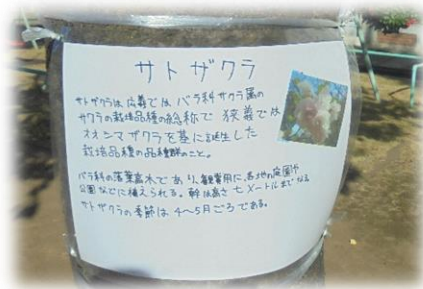 サトザクラ
サトザクラは広義ではバラ科サクラ属の
サクラの栽培品種の総称で 狭義では
オオシマザクラを基に誕生した
栽培品種の品種群のこと。
バラ科の落葉高木であり、観賞用に、各地の庭園や
公園などに植えられる。幹は高さ 七メートルまでなる
サトザクラの季節は 4〜5月ごろである。